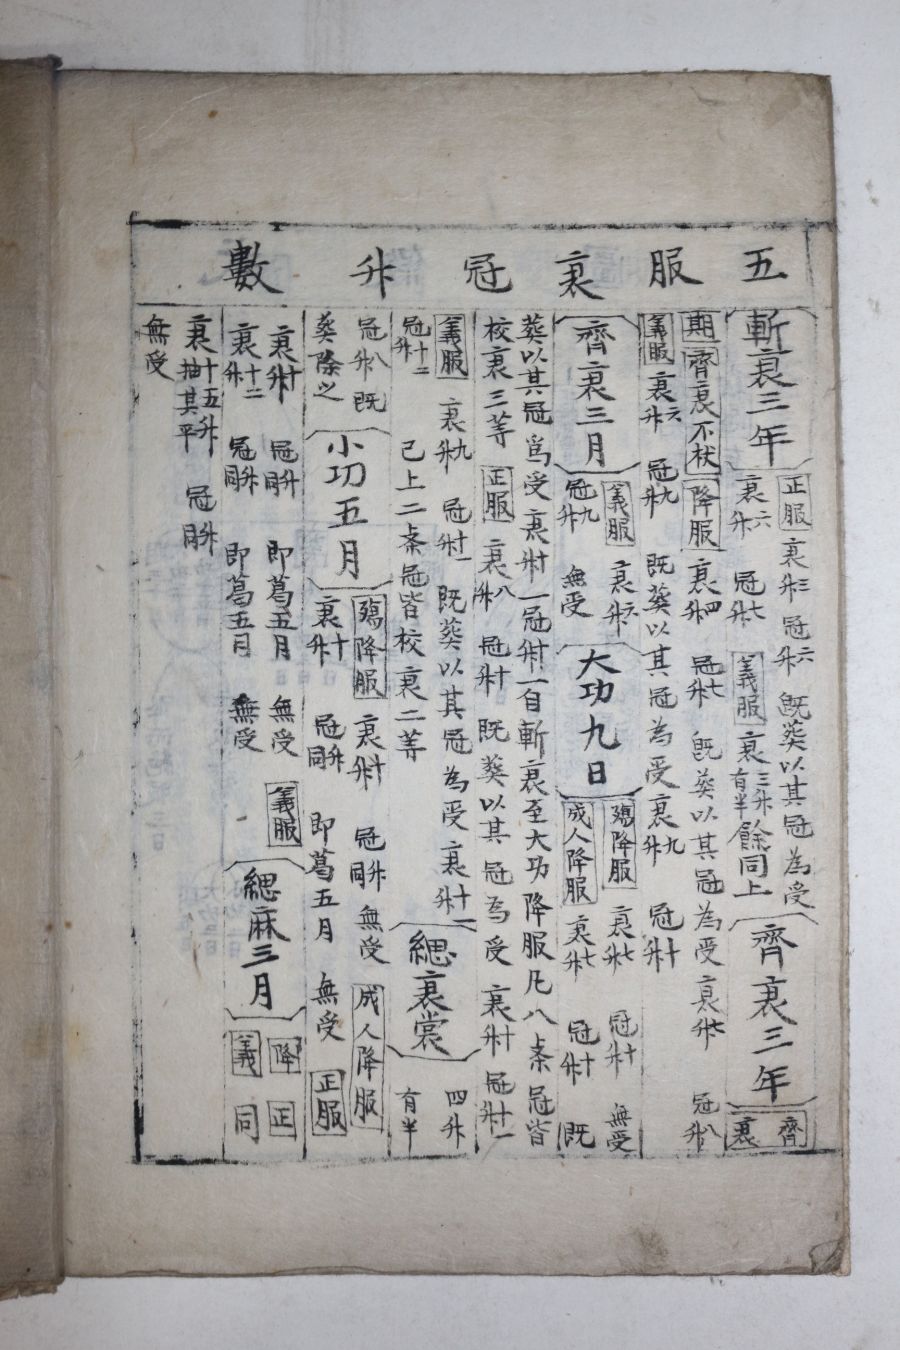 五服衰冠升數
斬衰三年
正服 衰三升 冠六升 既葬以其冠為受
衰六升 冠七升 義服 衰三升有半 餘同上
齊衰三年
齊
衰
期 齊衰不杖 降服 衰四升 冠七升 既葬以其冠為受衰七升 冠八升
義服 衰六升 冠九升 既葬以其冠為受衰九升 冠十升
齊衰三月
義服 衰六升
冠九升 無受
大功九日
殤降服 衰七升 冠十升 無受
成人降服 衰七升 冠十升 既
葬以其冠爲受衰十升 冠十一升 自斬衰至大功降服凡八条冠皆
校衰三等 正服 衰八升 冠十升 既葬以其冠為受 衰十升 冠十一升
義服 衰九升 冠十一升 既葬以其冠為受衰十一升
冠十二升 已上二条冠皆校衰二等
緦衰裳
四升
有半
冠八升 既
葬除之
小功五月
殤降服 衰十升 冠升同 無受 成人降服
衰十升 冠升同 即葛五月 無受 正服
衰十升 冠升同 即葛五月 無受 義服
衰十二升 冠升同 即葛五月 無受
緦麻三月
降 正
義 同
衰十五升抽其半 冠升同
無受